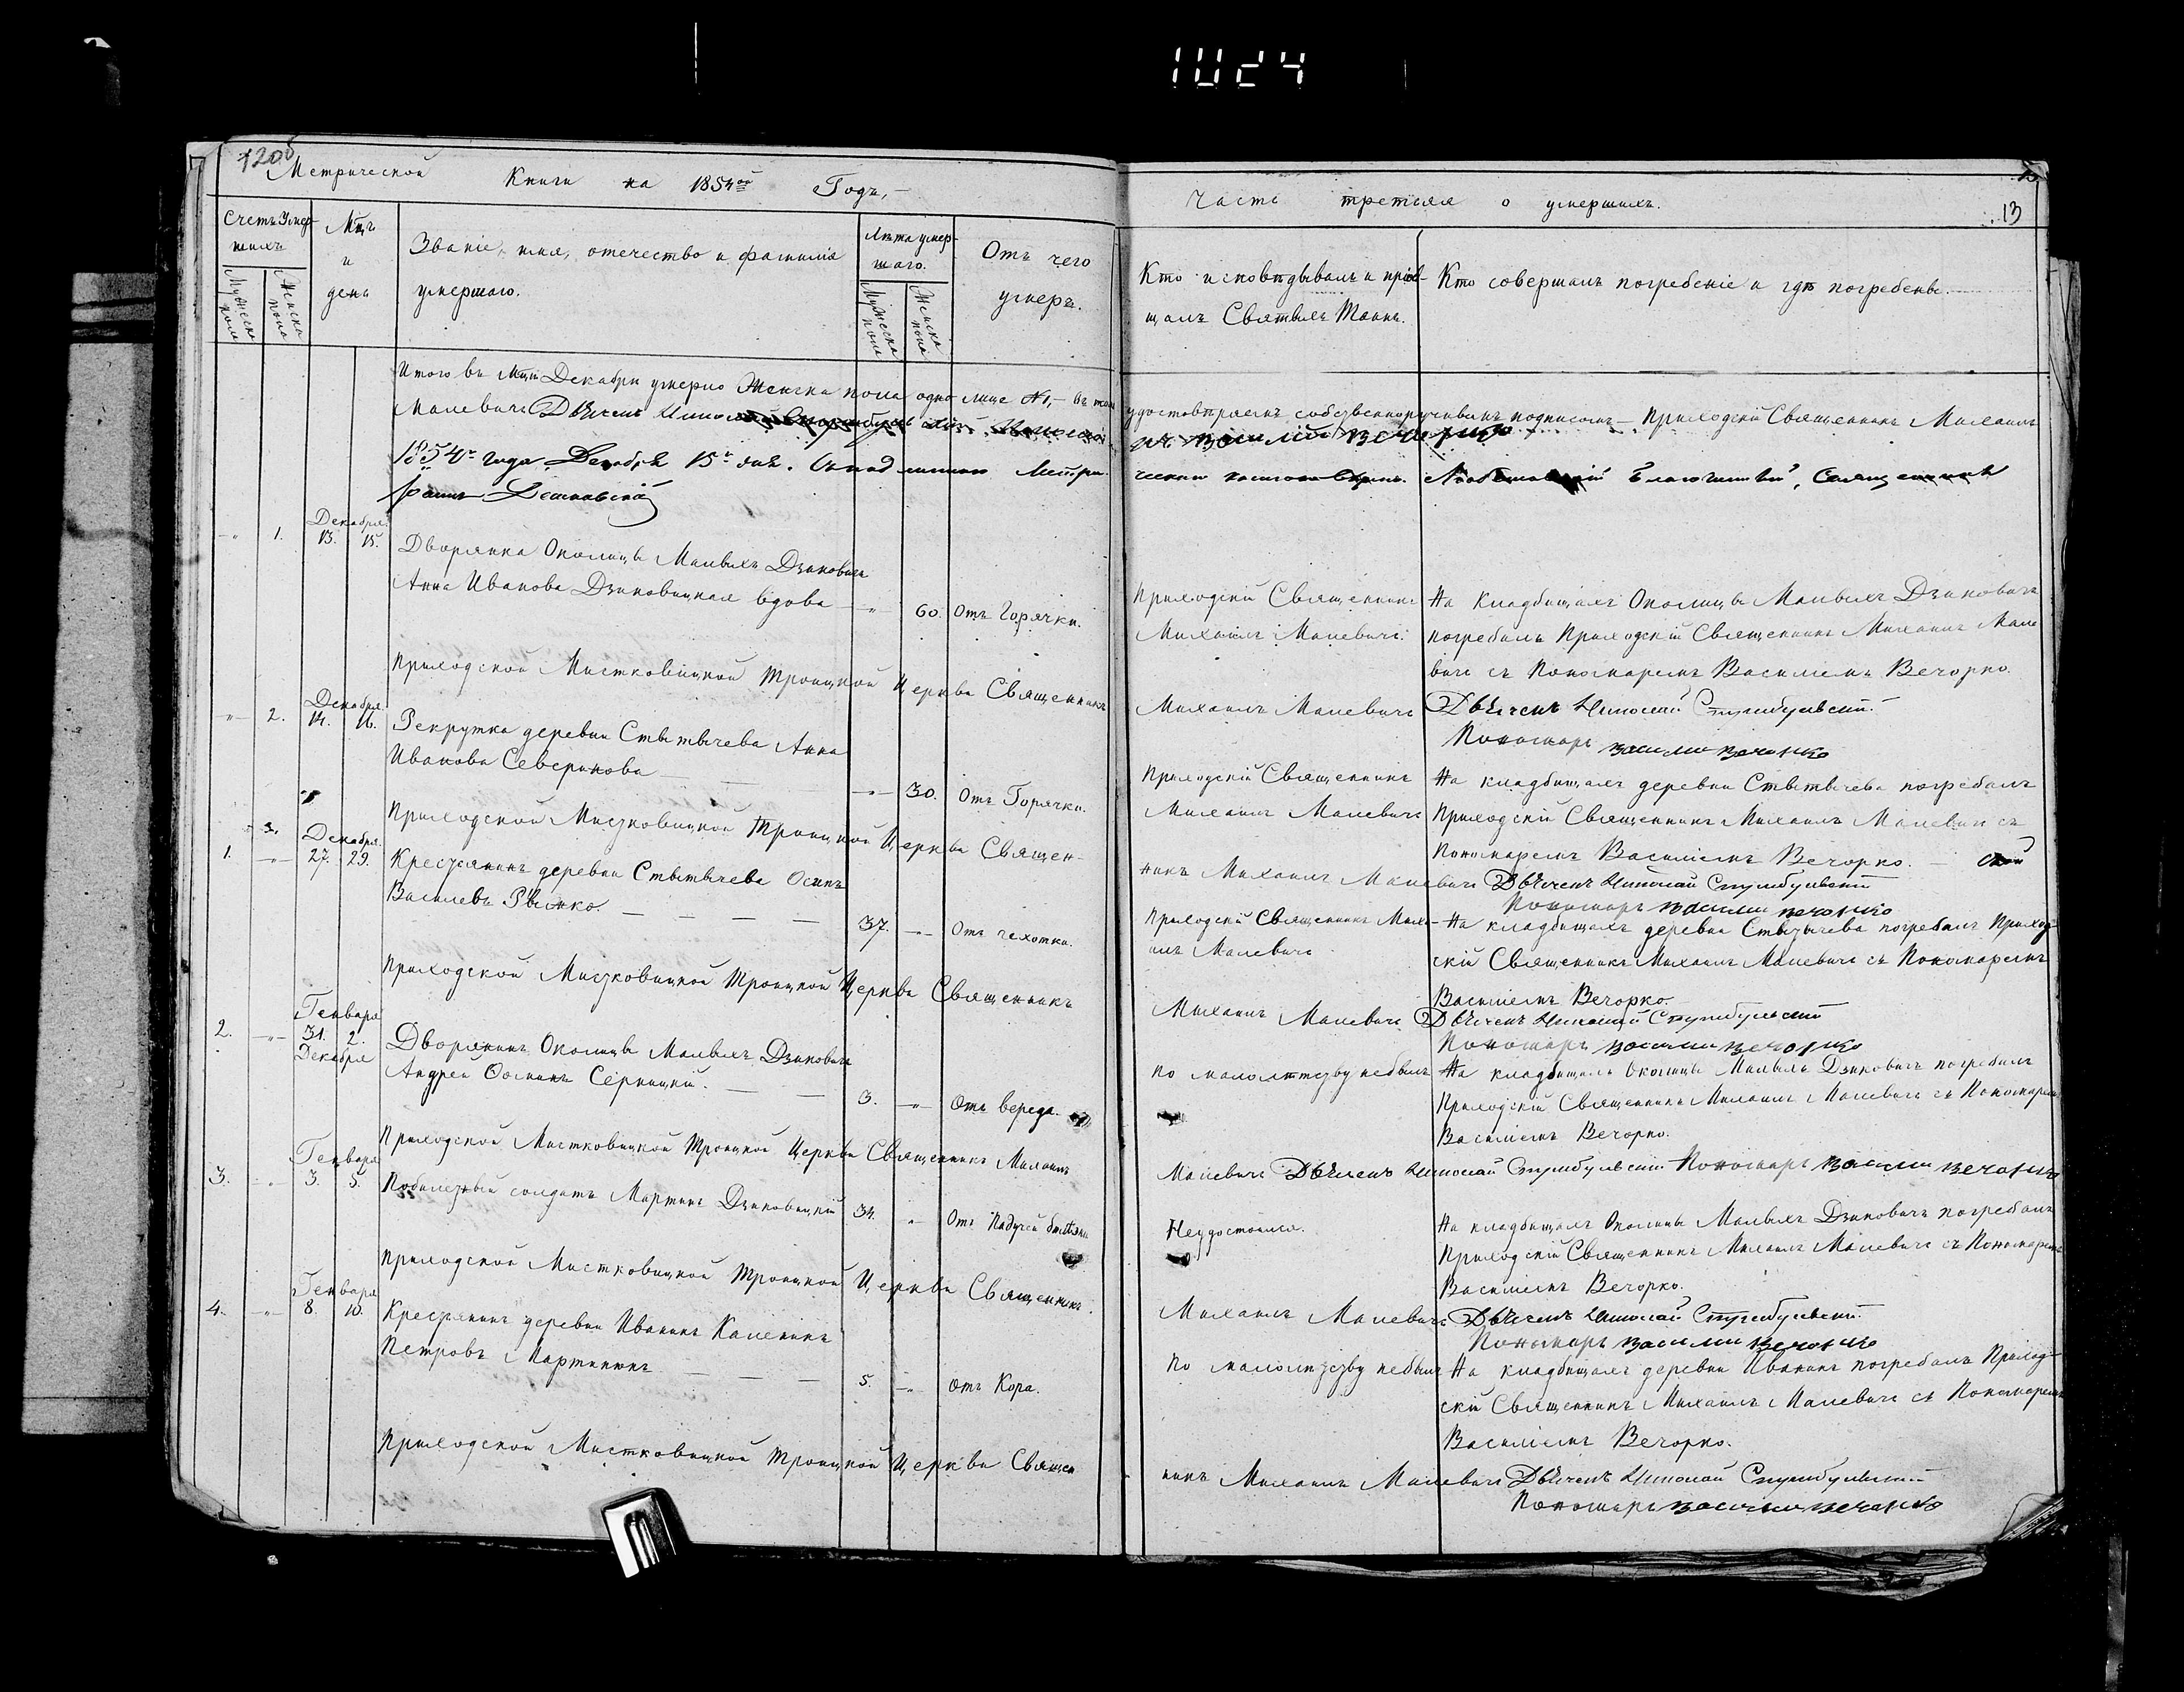 1024
120об
Метрической Книги на 1854ой Годъ,
Часть третяя о умершихъ.
13
Счетъ Умер-
шихъ
Мужеска
пола
Женска
пола
Мцъ
и
день
Званіе, имя, отечество и фамилія
умершаго.
Лѣта умер-
шаго.
Мужеска
пола
Женска
пола
Отъ чего
умеръ.
Кто исповѣдывалъ и пріоб-
щалъ Святыхъ Таинъ.
Кто совершалъ погребеніе и гдѣ погребены.
Итого въ Мцѣ Декабри умерло Женска пола одно лице №1,- въ томъ удостовѣряемъ собственноручнымъ подписомъ - Приходскій Священникъ Михаилъ
Малевичъ Дьячекъ Николай Василій Вечорко
1854го года Декабря 15го дня. Метри-
ческой Благочинный, Священникъ
1.
Декабря.
13. 15.
Дворянка Околицы Малыхъ Дзиковичъ
Анна Иванова Дзиковицкая вдова
60. Отъ Горячки.
Приходскій Священникъ
Михаилъ Малевичъ.
На кладбищахъ Околицы Малыхъ Дзиковичъ
погребалъ Приходскій Священникъ Михаилъ Мале
вичъ съ Пономаремъ Василіемъ Вечорко.
Приходской Мистковицкой Троицкой Церкви Священникъ
Михаилъ Малевичъ Дьячекъ Николай Стулибульскій.
Пономарь Василій Вечорко
2.
Декабря.
14. 16.
Рекрутка деревни Стытычева Анна
Иванова Северинова
30. Отъ Горячки.
Приходскій Священникъ
Михаилъ Малевичъ
На кладбищахъ деревни Стытычева погребалъ
Приходскій Священникъ Михаилъ Малевичъ съ
Пономаремъ Василіемъ Вечорко.
Приходской Мистковицкой Троицкой Церкви Священ-
никъ Михаилъ Малевичъ Дьячекъ Николай Стулибульскій
Пономарь Василій Вечорко
1.
Декабря.
27. 29.
Крестьянинъ деревни Стытычева Осипъ
Васильевъ Рымко.
37. Отъ чехотки.
Приходскій Священникъ Миха-
илъ Малевичъ
На кладбищахъ деревни Стытычева погребалъ Приход-
скій Священникъ Михаилъ Малевичъ съ Пономаремъ
Василіемъ Вечорко.
Приходской Мистковицкой Троицкой Церкви Священникъ
Михаилъ Малевичъ Дьячекъ Николай Стулибульскій
Пономарь Василій Вечорко
2.
Генваря
31. 2.
Декабря
Дворянинъ Околицы Малыхъ Дзиковичъ
Андрей Осипъ Серницкій.
3. Отъ вереда.
По малолѣтству небылъ
На кладбищахъ Околицы Малыхъ Дзиковичъ погребалъ
Приходскій Священникъ Михаилъ Малевичъ съ Пономаремъ
Василіемъ Вечорко.
Приходской Мистковицкой Троицкой Церкви Священникъ Михаилъ
Малевичъ Дьячекъ Николай Стулибульскій Пономарь Василій Вечорко
3.
Генваря
3. 5.
Побилетный солдатъ Мартинъ Дзиковицкій
34. Отъ Падучей болѣзни
Неудостоился.
На кладбищахъ Околицы Малыхъ Дзиковичъ погребалъ
Приходскій Священникъ Михаилъ Малевичъ съ Пономаремъ
Василіемъ Вечорко.
Приходской Мистковицкой Троицкой Церкви Священникъ
Михаилъ Малевичъ Дьячекъ Николай Стулибульскій.
Пономарь Василій Вечорко
4.
Генваря
8. 10.
Крестьянинъ деревни Иваникъ Каленикъ
Петровъ Мартинюкъ
5. Отъ Кора.
По малолѣтству небылъ
На кладбищахъ деревни Иваникъ погребалъ Приход-
скій Священникъ Михаилъ Малевичъ съ Пономаремъ
Василіемъ Вечорко.
Приходской Мистковицкой Троицкой Церкви Священ
никъ Михаилъ Малевичъ Дьячекъ Николай Стулибульскій
Пономарь Василій Вечорко